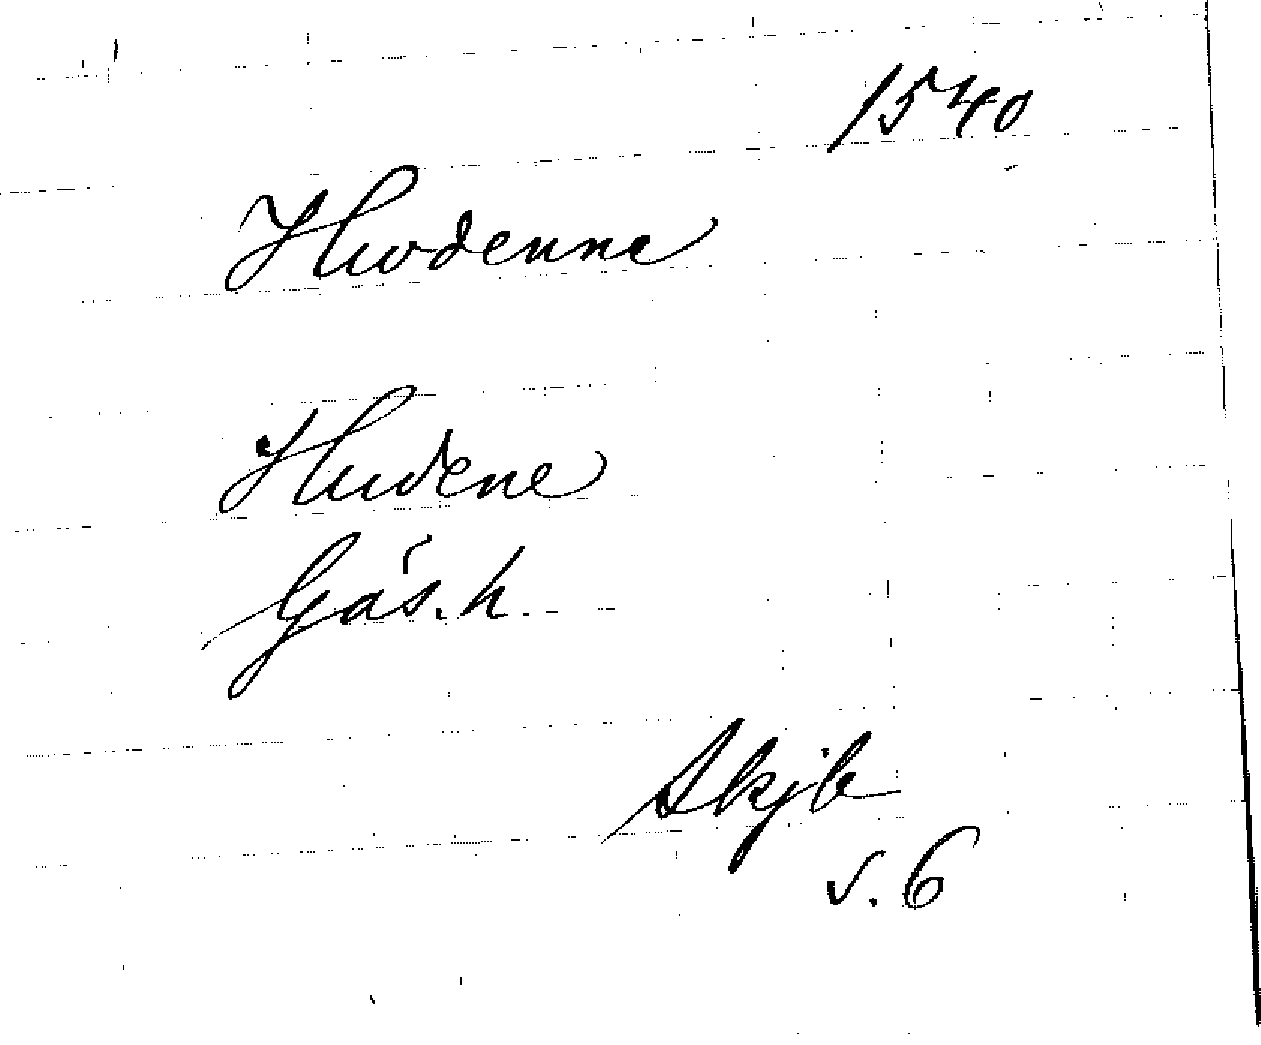 1540
Hwdenne
Hudene
Gäs. h.
Skjb
v. 6